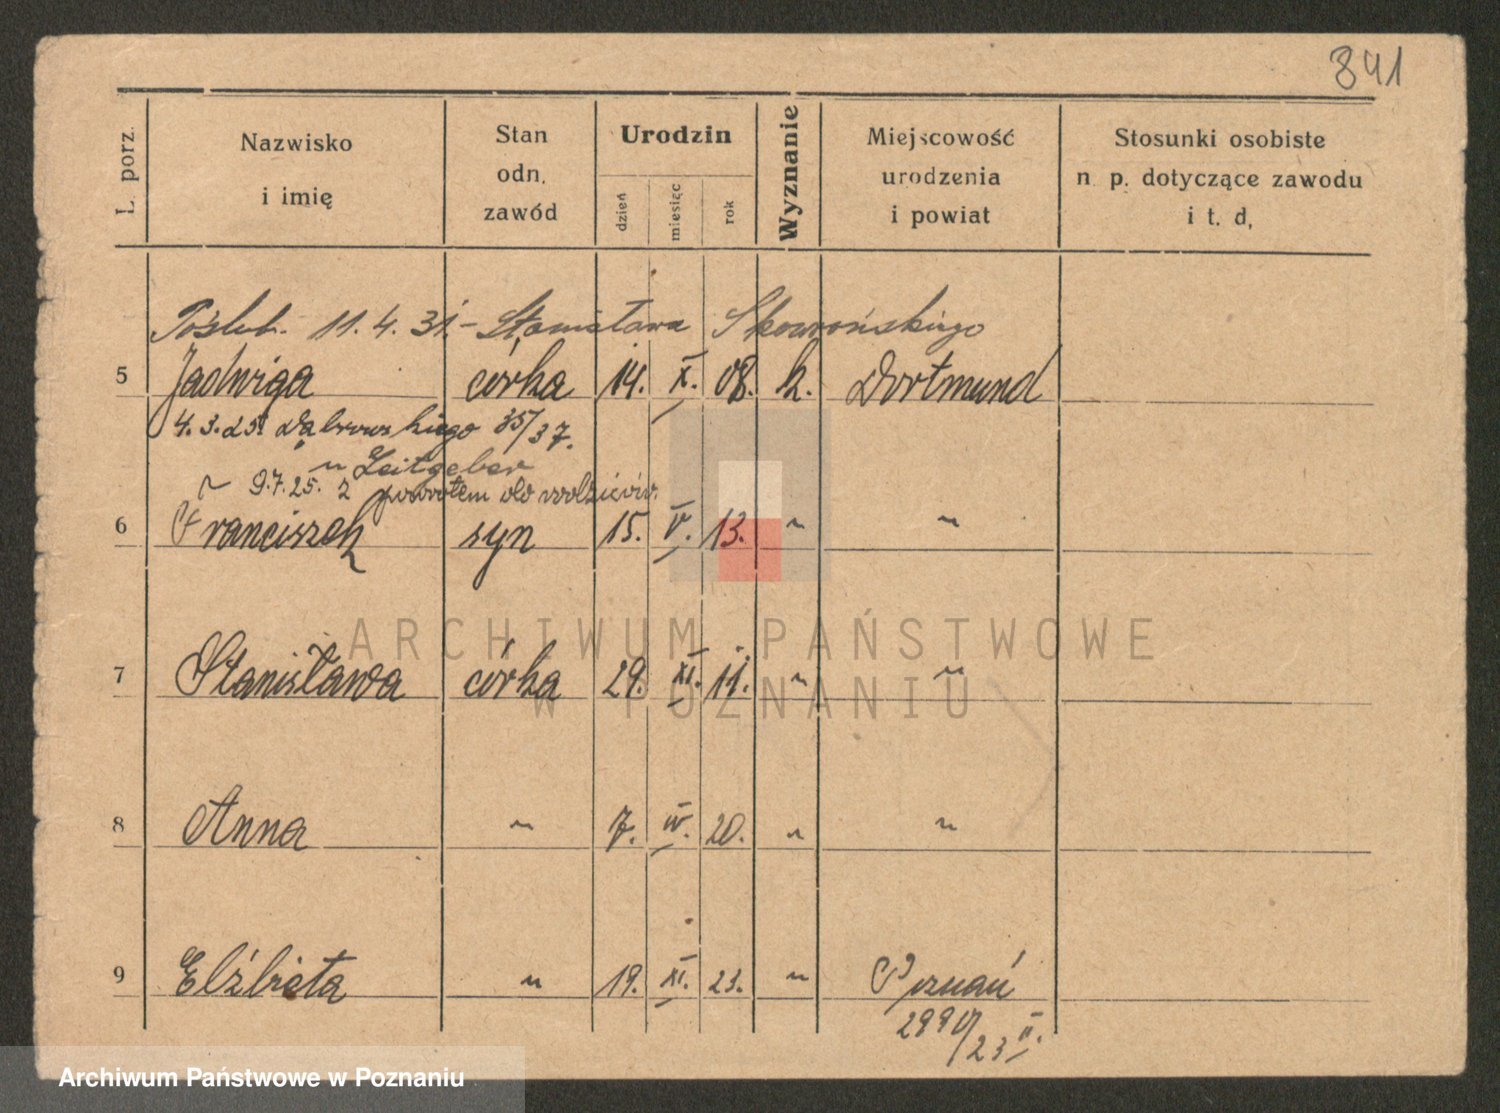 841
L. porz. Nazwisko i imię Stan odn. zawód Urodzin dzień miesiąc rok Wyznanie Miejscowość urodzenia i powiat Stosunki osobiste n. p. dotyczące zawodu i t. d.
Poślub. 11.4.31.- Stanisława Skowrońskiego
5 Jadwiga córka 14. X. 08. k. Dortmund
4.3.25. Dąbrowskiego 35/37.
" Leitgeber
~ 9.7.25. z powrotem do rodziców.
6 Franciszek syn 15. V. 13. " "
7 Stanisława córka 29. XI. 11. " "
8 Anna " 7. IV. 20. " "
9 Elżbieta " 19. XI. 23. " Poznań
/23 II.
ARCHIWUM PAŃSTWOWE
W POZNANIU
Archiwum Państwowe w Poznaniu